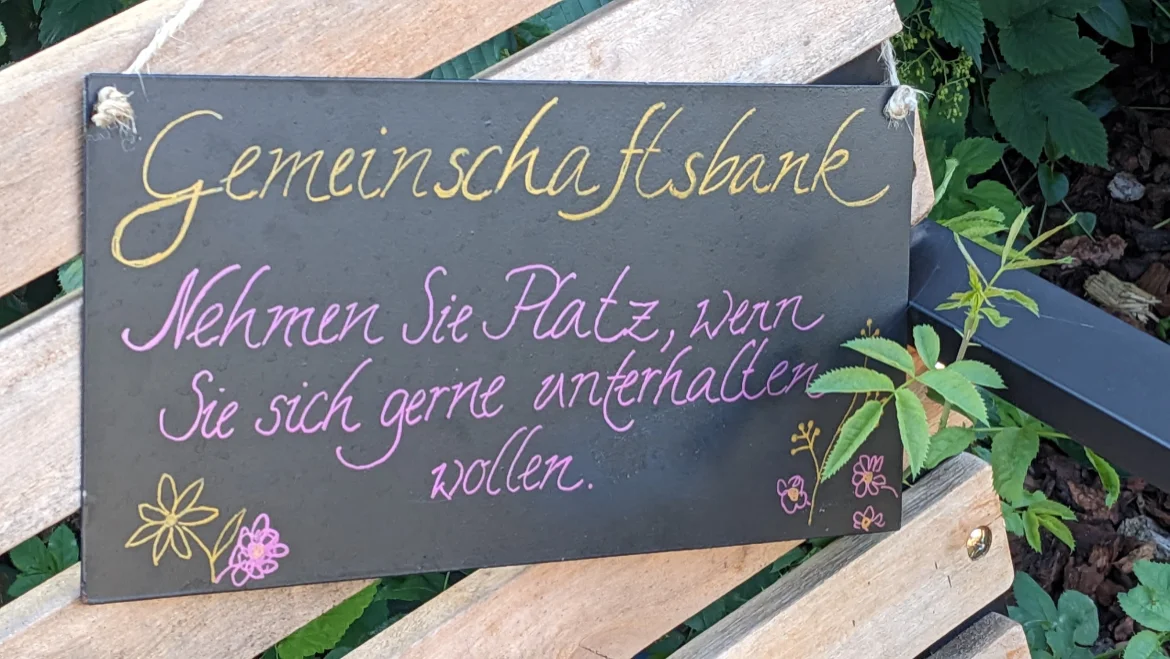 Gemeinschaftsbank
Nehmen Sie Platz, wenn
Sie sich gerne unterhalten
wollen.